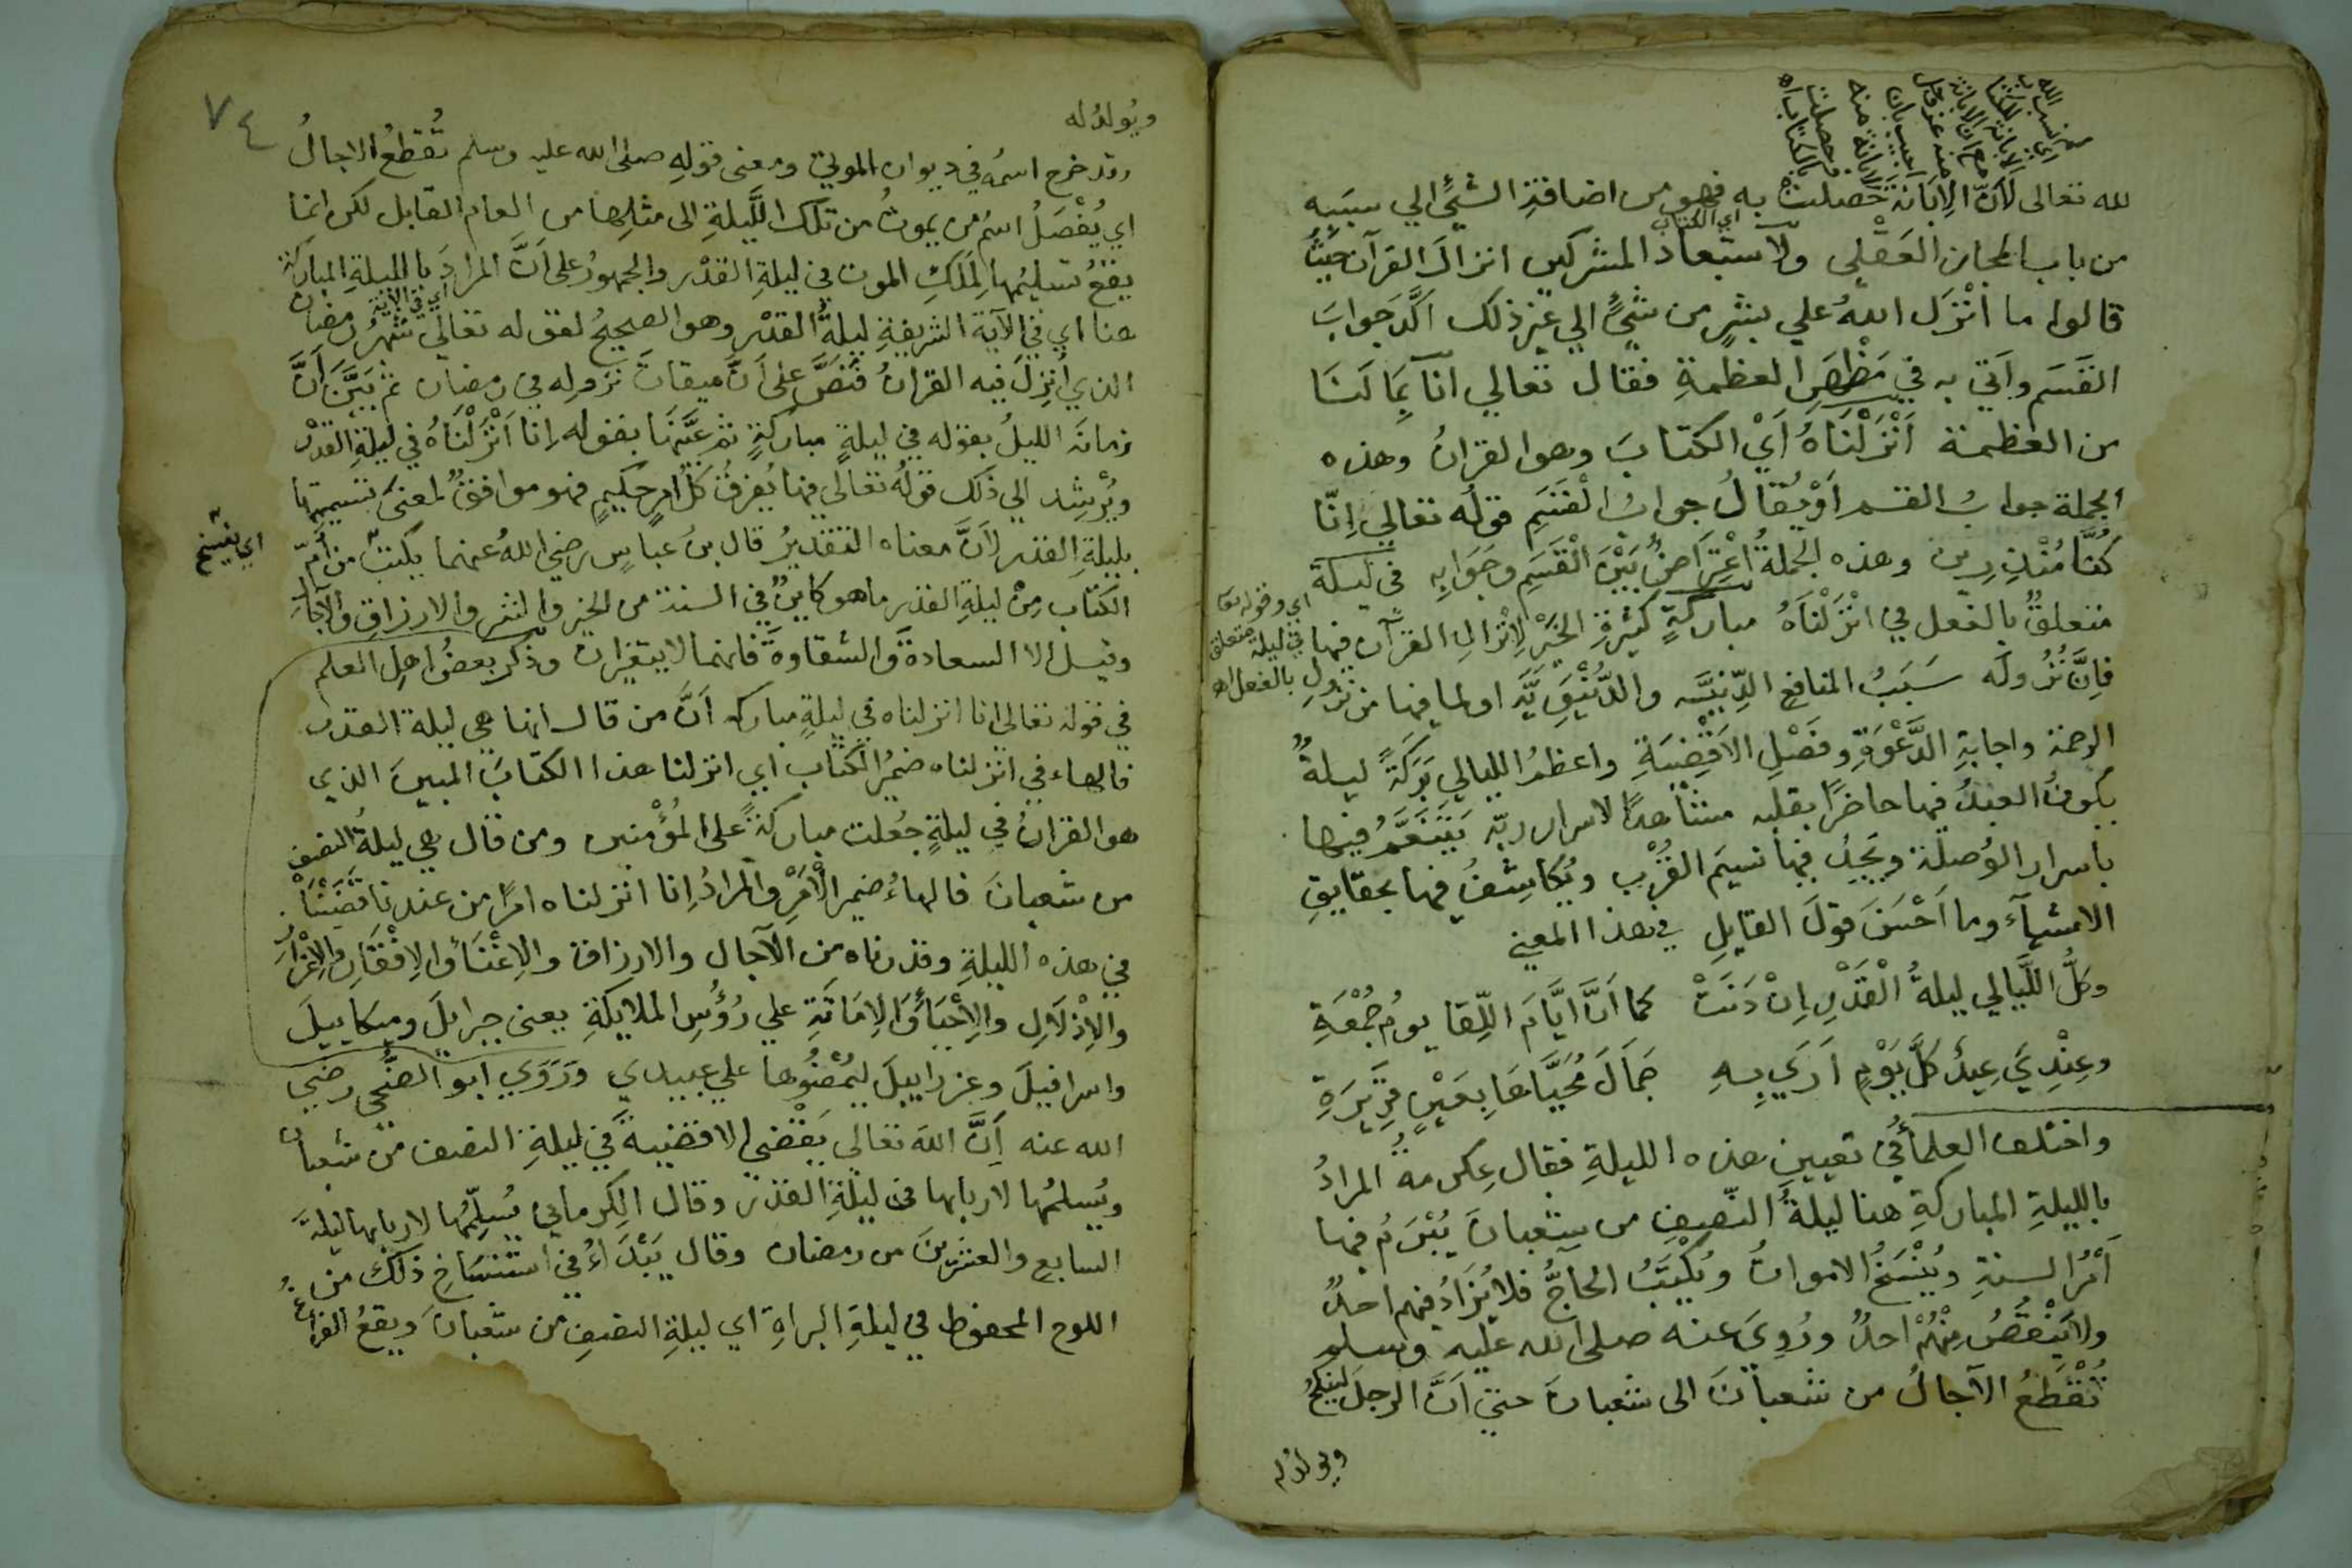 لله تعالى لأنّ الإبانة حصلت به فهو من اضافة الشئ الي سببه
اي الكتاب
من باب المجاز العقلي ولاستبعاد المشركين انزال القرآن حيث
قالوا ما أنزل اللهُ علي بشرٍ من شئٍ الي غير ذلك اكّد جوابَ
القَسَم وأتي به في مَظْهَرِ العظمةِ فقال تعالي انا بما لنا
من العظمة أَنْزَلْنَاهُ أَيْ الكتابَ وهو القرانُ وهذه
الجملة جوابُ القسم اَوْ يُقَالُ جوابُ الْقَسَمِ قولُه تعالي إِنّا
كُنَّا مُنْذِرِين وهذه الجملةُ اعْتِرَاضٌ بَيْنَ الْقَسَمِ وجَوَابِهِ في ليلة
متعلقٌ بالفعل في انْزَلْنَاهُ مباركةٍ كثيرةِ الخَيْرِ لِإنْزالِ القرآن فيها
اي وقوله تعا
في ليلة متعلق
بالفعل اه
فإِنَّ نُزُولَه سَبَبُ المنافعِ الدِّينيَّه والدُّنْيَوِيَّه اولما فيها من نزولِ
الرحمة واجابةِ الدَّعْوَةِ وفَصْلِ الاَقْضِيَةِ واعظمُ الليالي بَرَكَةً ليلةٌ
يكونُ العبدُ فيها حاضرًا بقلبه مشاهدًا لاسرار ربّه يَتَنَعَّمُ فيها
باسرار الوُصلة ويَجِدُ فيها نسيمَ القُرْب ويُكاشِفُ فيها بحقايقِ
الاشيآء وما اَحْسَنَ قولَ القايلِ في هذا المعني
وكلُّ اللَّيالي ليلةُ الْقَدْرِ اِنْ دَنَتْ كما اَنَّ ايَّامَ اللِّقا يومُ جُمْعَةِ
وعِنْدِي عِيدٌ كلَّ يَوْمٍ اَرَي بِهِ جَمَالَ مُحَيَّاهَا بِعَيْنٍ قَرِيرَةِ
واختلف العلمأُ في تعيينِ هذه الليلةِ فقال عِكرمةُ المرادُ
بالليلةِ المباركةِ هنا ليلةُ النّصِيفِ من شعبانَ يُبْرَمُ فيها
أَمْرُ السنةِ ويُنْسَخُ الامواتُ ويُكْتَبُ الحاجُّ فلا يُزَادُ فيهم احدٌ
ولا يَنْقُصُ مِنْهُمْ احدٌ ورُوِيَ عنه صلى الله عليه وسلم
تُقْطَعُ الآجالُ من شعبانَ الى شعبانَ حتي اَنَّ الرجلَ لينكحُ
ويولد له
٧٤
ويُولدُ له
وقد خرج اسمُه في ديوان الموتي ومعنى قولِه صلى الله عليه وسلم تُقطعُ الاجالُ
اي يُفْصَلُ اسمُ من يموتُ من تلك اللَّيلةِ الى مثلِها من العام القابل لكن انما
يقعُ تسليمُها لِمَلَكِ الموت في ليلةِ القدْر والجمهورُ على اَنَّ المرادَ بالليلةِ المباركة
هنا اي في الآية الشريفةِ ليلةُ القدْر وهو الصحيحُ لقوله تعالي شهرُ رمضان
اي في الاية
الذي أُنزِلَ فيه القرانُ فنَصَّ على اَنَّ ميقاتَ نزوله في رمضان ثم بَيَّنَ اَنَّ
زمانَه الليلُ بقوله في ليلةٍ مباركةٍ ثم عيَّنَها بقوله إِنا أَنْزَلْنَاهُ في ليلةِ القدْر
ويُرْشِد الي ذلك قولُه تعالي فيها يُفرقُ كلُّ امرٍ حكيمٍ فهو موافقٌ لمعنَى تسميتِها
بليلةِ القدر لأَنَّ معناه التقديرُ قال بنُ عباسٍ رضي اللهُ عنهما يكتبُ من أُمِّ
اي ينسخ
الكتاب مِنْ ليلةِ القدر ما هو كاينٌ في السنة من الخيرِ والشرِ والارزاقِ والآجال
وقيل الا السعادةَ والشقاوةَ فانهما لا يتغيران وذكر بعضُ اهلِ العلم
في قوله تعالى انا انزلناه في ليلةٍ مباركه اَنَّ من قال انها هي ليلة القدر
فالهاء في انزلناه ضميرُ الكتابِ أي انزلنا هذا الكتابَ المبينَ الذي
هو القرانُ في ليلةٍ جُعلت مباركةً على المُؤمنين ومن قال هي ليلةُ النصف
من شعبانَ فالهاءُ ضميرُ الْأَمْرِ والمرادُ إنا انزلناه امرًا من عندنا قَضَيْنَاهُ
في هذه الليلةِ وقدرناه من الآجال والارزاق والِاغْنَاءِ والِافْقَارِ والِاعْزَازِ
والِاذْلَالِ والِاحْيَاءِ وَالِامَاتَةِ علي رُؤُسِ الملايكةِ يعنى جبرايلَ وميكاييلَ
واسرافيلَ وعزراييلَ ليُمْضُوها علي عبيدي ورَوَي ابو الضُّحَى رضي
الله عنه اَنَّ اللهَ تعالى يَقْضي الاقضيةَ في ليلةِ النصف من شعبان
ويُسلمُها لاربابها في ليلةِ القدْر وقال الكِرماني يُسلِّمُها لاربابها ليلةَ
السابعِ والعشرينَ من رمضان وقال يَبْدَاءُ في استنسَاخِ ذلك من
اللوح المحفوظ في ليلةِ البراةِ اي ليلةِ النصفِ من شعبانَ ويقعُ الفراغُ